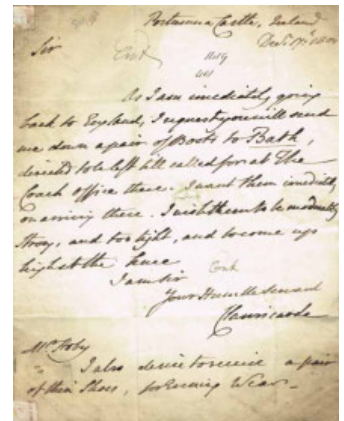 Portumna Castle, Ireland
Decr 17th
Sir
As I am imediatly going
back to England, I request you will send
me down a pair of Boots to Bath,
directed to be left till called for at The
Coach office there. I want them imediatly
on arriving there. I wish them to be made
strong, and too tight, and to come up
high at the knee
I am Sir
Your Humble Servant
Clanricarde
Mr Hoby
I also desire to receive a pair
of thin Shoes, for Evening Wear_